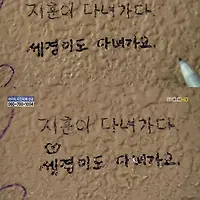 지훈이 다녀가다.
세경이도 다녀가요.
MBC HD
지훈이 다녀가다.
세경이도 다녀가요.